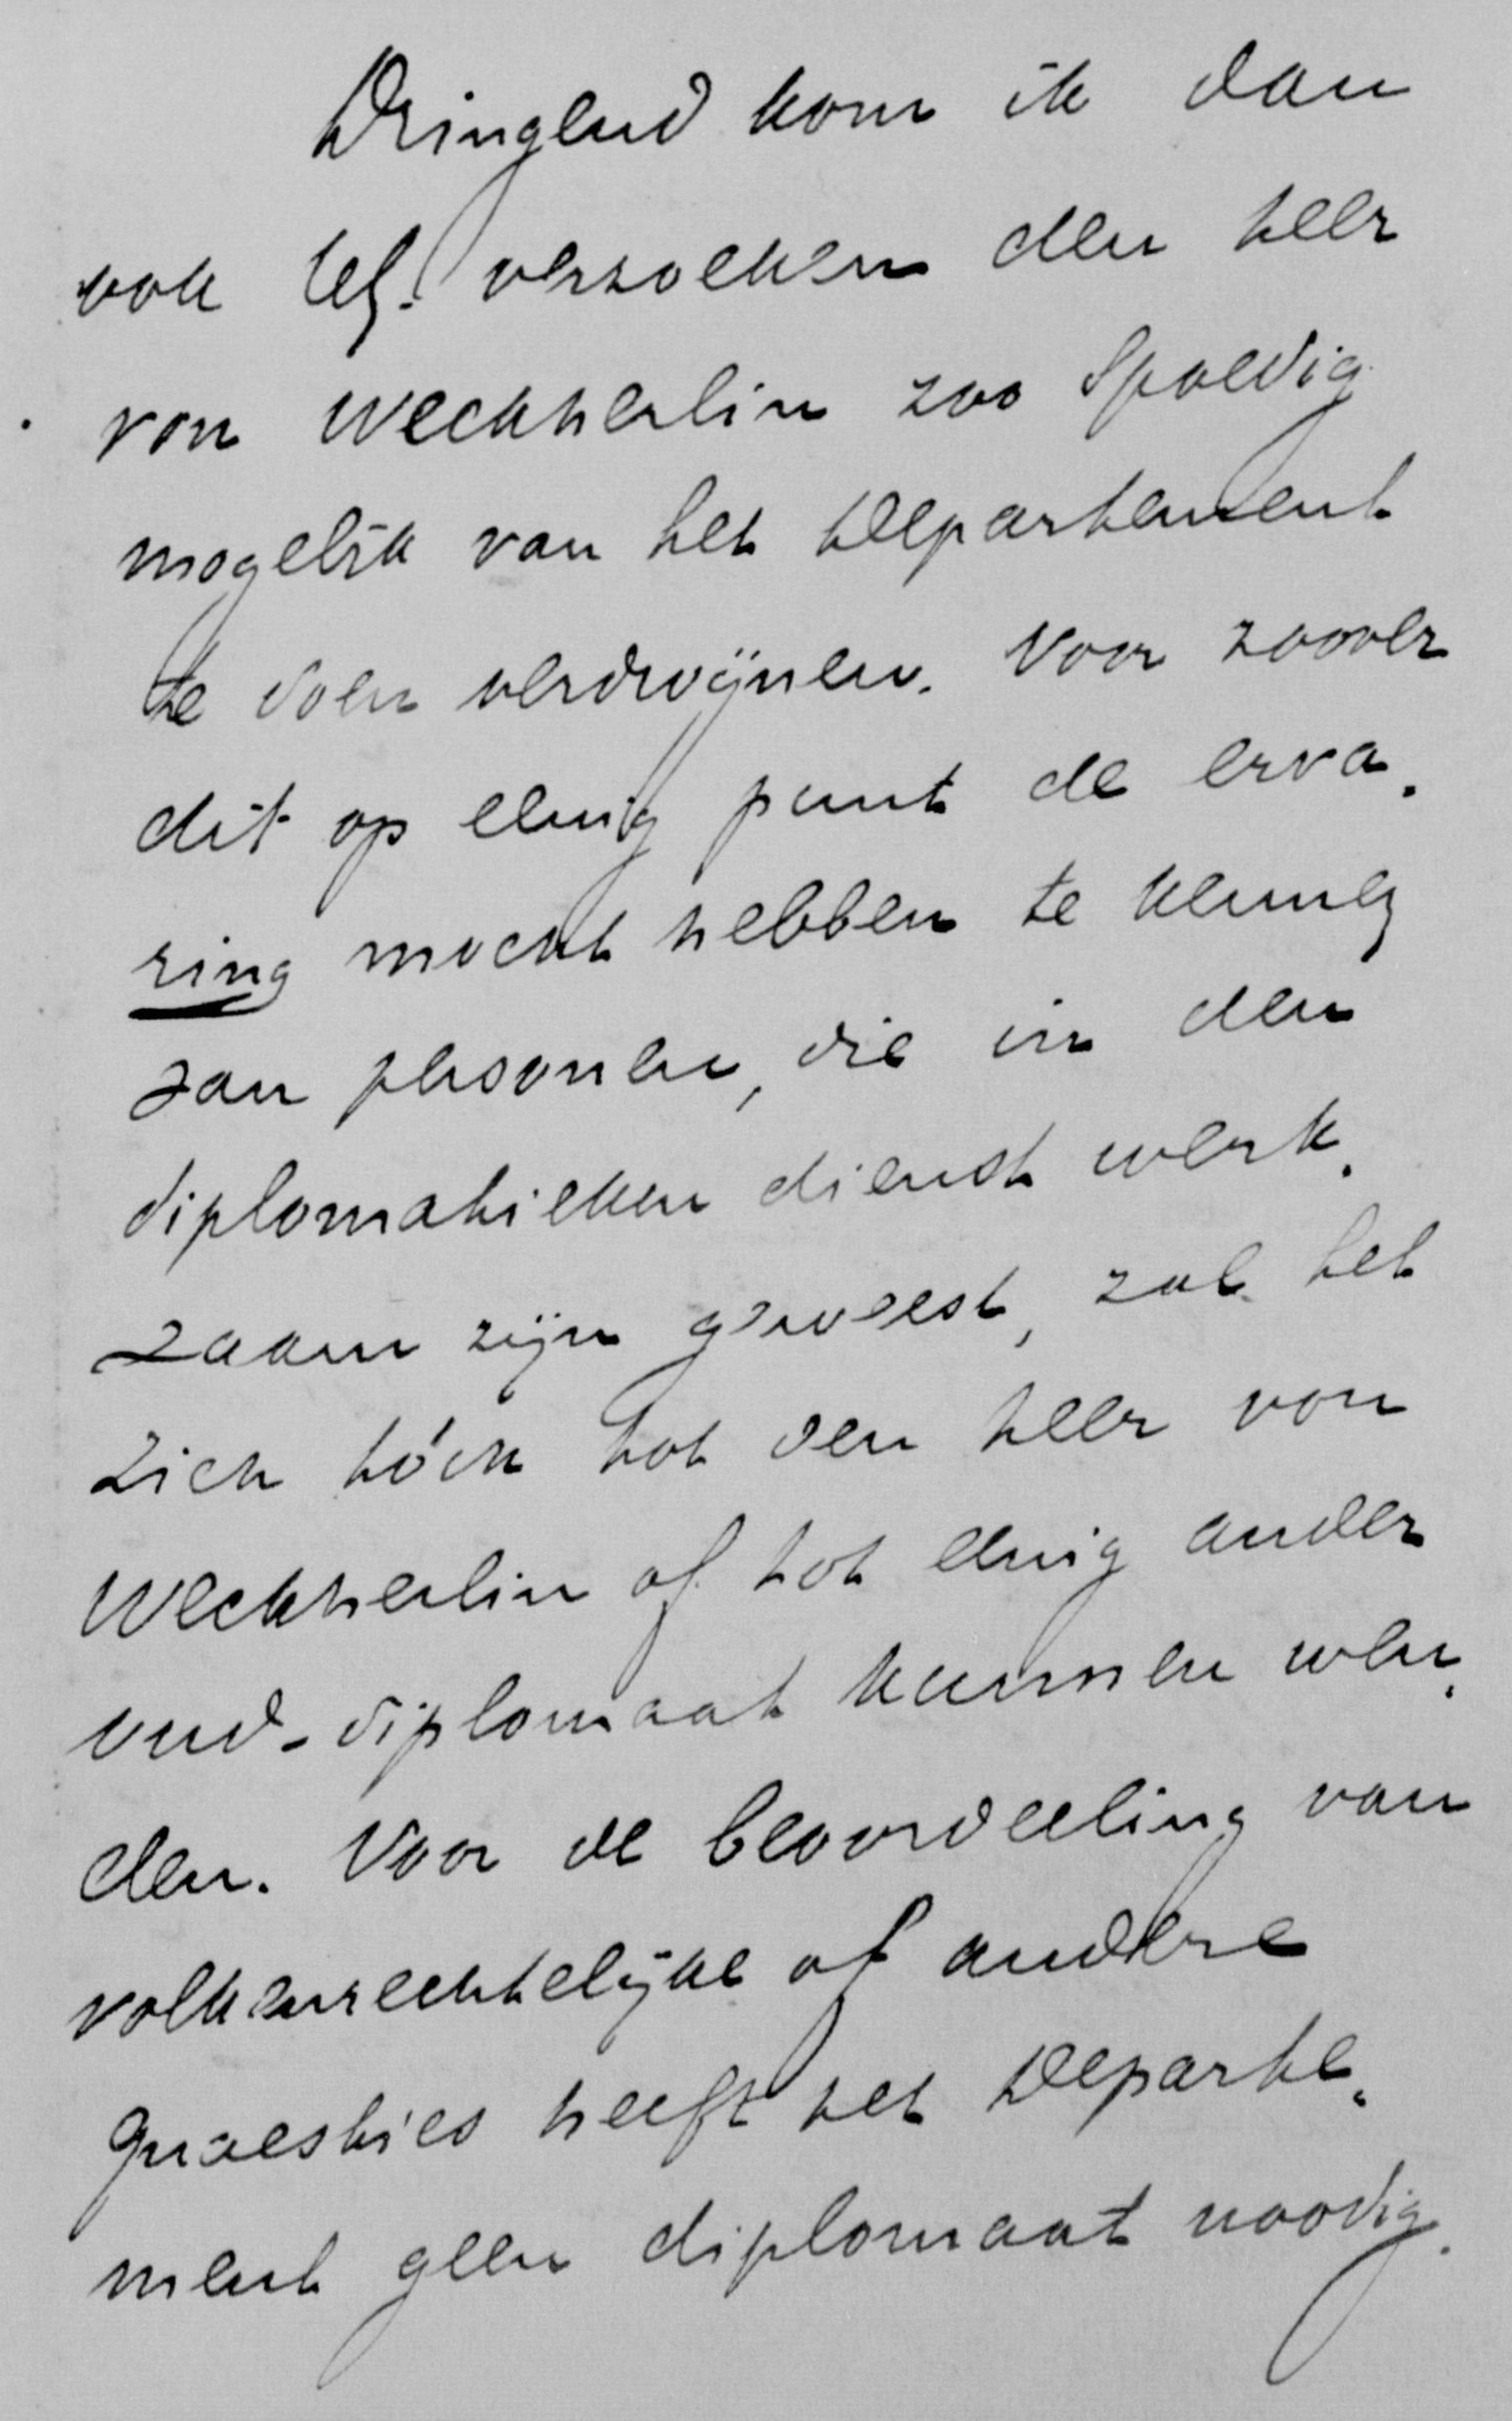 Dringend kom ik dan
ook UE. verzoeken den heer
von Weckherlin zoo spoedig
mogelijk van het Departement
te doen verdwijnen. Voor zoover
dit op eenig punt de erva-
ring mocht hebben te kennen
van personen, die in den
diplomatieken dienst werk-
zaam zijn geweest, zal het
zich tóch tot den heer von
Weckherlin of tot eenig ander
oud-diplomaat kunnen wen-
den. Voor de beoordeeling van
volkenrechtelijke of andere
quaesties heeft het Departe-
ment geen diplomaat noodig.